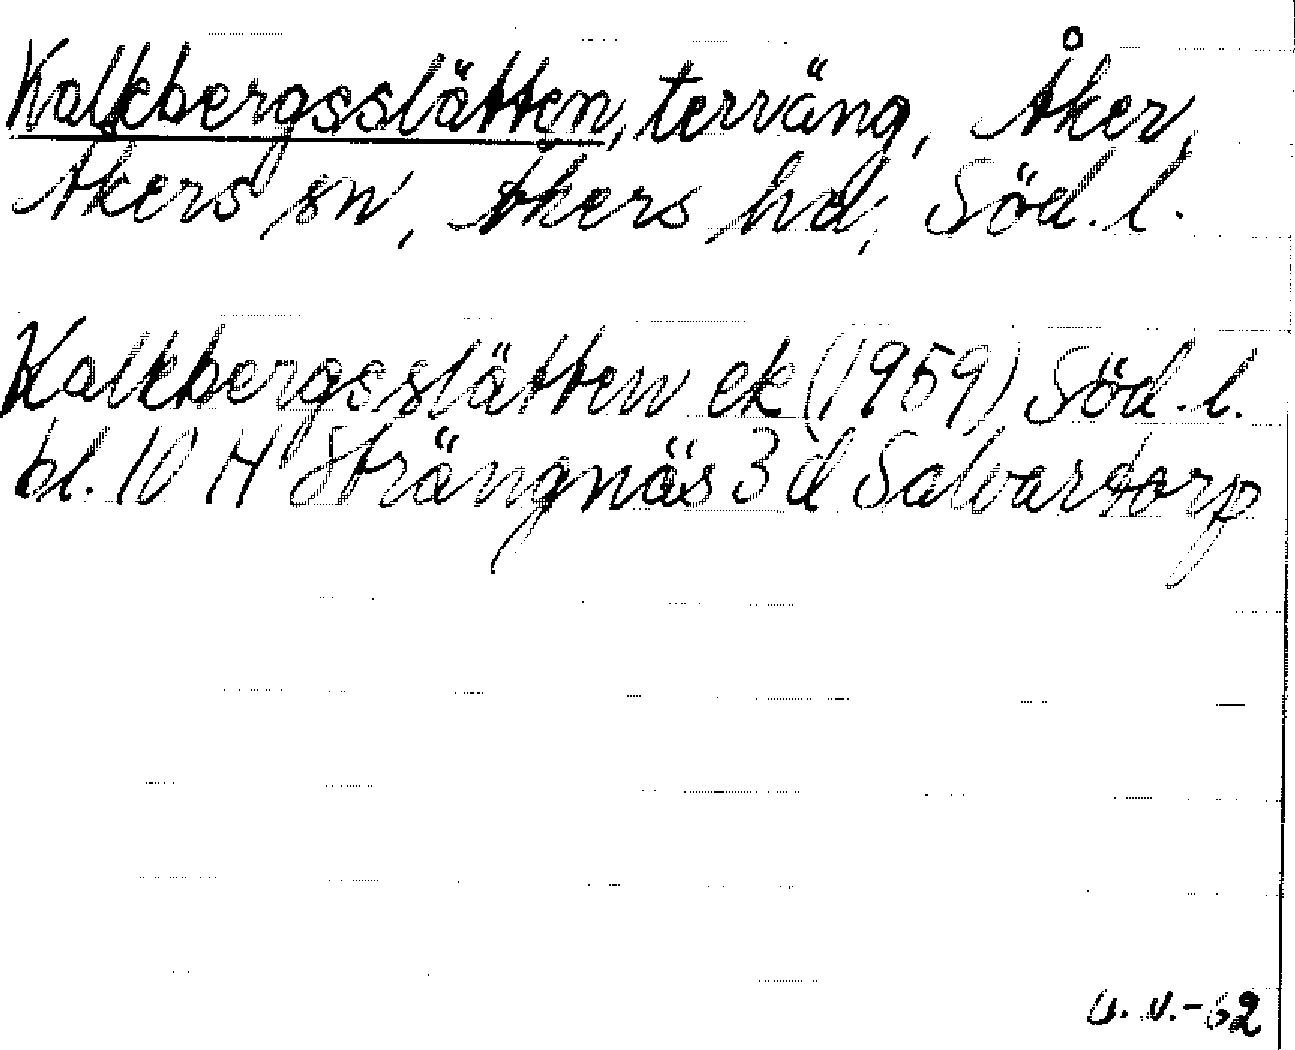 Kalkbergsslätten, terräng, Åker,
Åkers sn, Åkers hd, Söd. l.
Kalkbergsslätten ek (1959) Söd. l.
bl. 10 H Strängnäs 3 d Salvartorp
U. V. -62